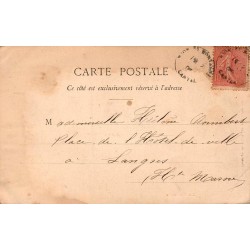 CARTE POSTALE
Ce côté est exclusivement réservé à l'adresse
Mademoiselle Hélène
Place de l'Hôtel-de-ville
à Langres
(Hte Marne)